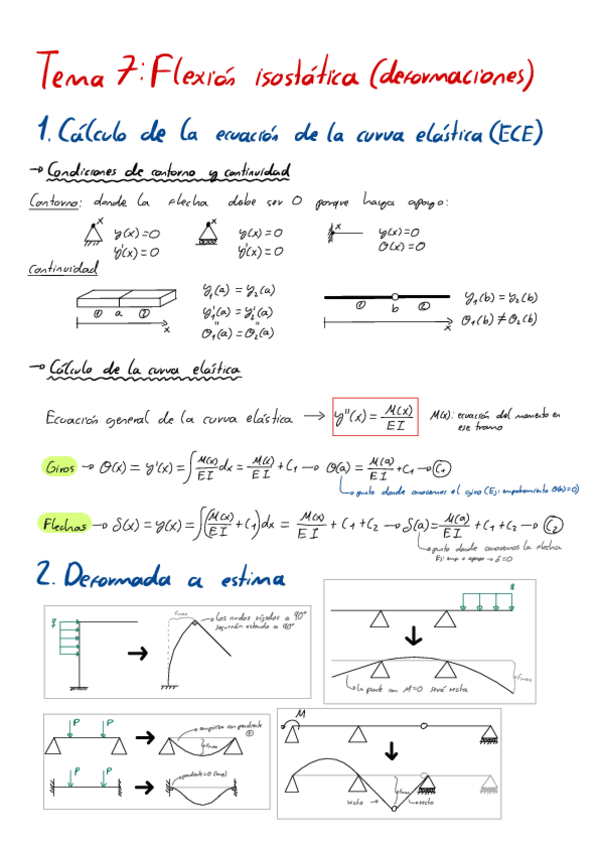 Tema 7: Flexión isostática (deformaciones)
1. Cálculo de la ecuación de la curva elástica (ECE)
→ Condiciones de contorno y continuidad
Contorno: donde la flecha debe ser 0 porque haya apoyo:
x y(x)=0 x y(x)=0 x y(x)=0
y'(x)=0 y'(x)=0 θ(x)=0
Continuidad
y₁(a) = y₂(a) y₁(b) = y₂(b)
① a ② y₁'(a) = y₂'(a) ① b ② θ₁(b) ≠ θ₂(b)
x θ₁(a) = θ₂(a) x
→ Cálculo de la curva elástica
Ecuación general de la curva elástica → y''(x) = M(x)/EI M(x): ecuación del momento en
ese tramo
Giros → θ(x) = y'(x) = ∫ M(x)/EI dx = M(x)/EI + C₁ → θ(a) = M(a)/EI + C₁ → C₁
punto donde conocemos el giro (Ej: empotramiento θ(a)=0)
Flechas → δ(x) = y(x) = ∫(M(x)/EI + C₁)dx = M(x)/EI + C₁ + C₂ → δ(a) = M(a)/EI + C₁ + C₂ → C₂
punto donde conocemos la flecha
Ej: emp. o apoyo → δ=0
2. Deformada a estima
q fmax → Los nudos rígidos a 90°
seguirán estando a 90°
q
fmax
la parte con M=0 será recta
P P empieza con pendiente
fmax
P P pendiente=0 (emp)
M
fmax
recta recta